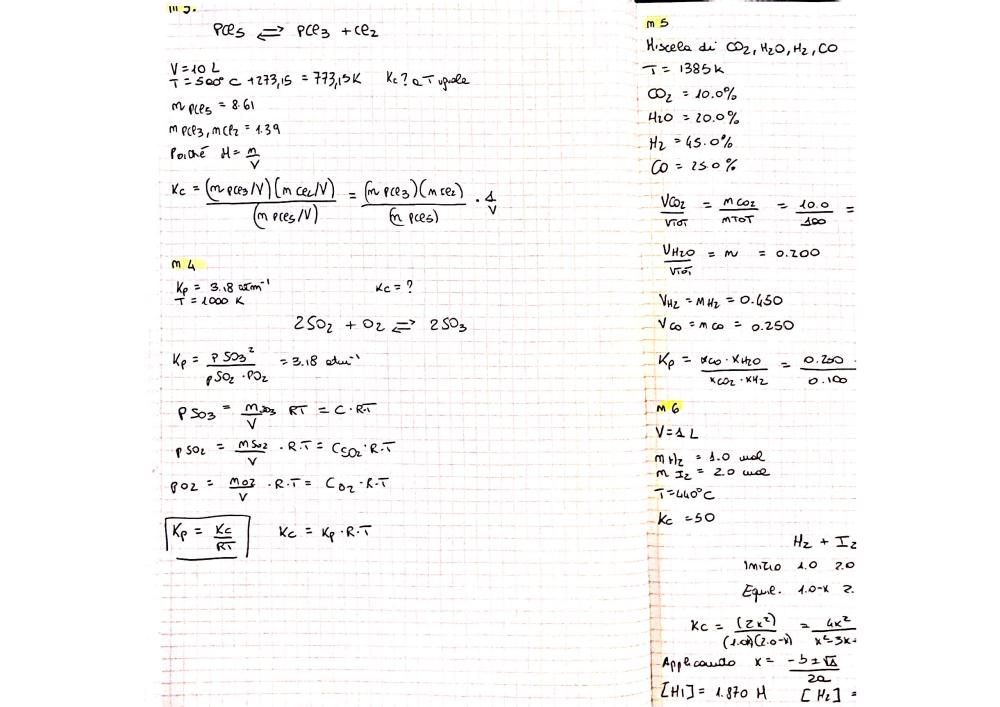 m 3.
PCl5 ⇌ PCl3 + Cl2
V = 10 L
T = 500° C + 273,15 = 773,15K Kc? a T uguale
m PCl5 = 8.61
m PCl3, mCl2 = 1.39
Poiché M = m/V
Kc = (m PCl3/V)(m Cl2/V) / (m PCl5/V) = (m PCl3)(m Cl2) / (m PCl5) · 1/V
m 4
Kp = 3.18 atm⁻¹ Kc = ?
T = 1000 K
2SO2 + O2 ⇌ 2SO3
Kp = p SO3² / pSO2 · PO2 = 3.18 atm⁻¹
pSO3 = mSO3/V RT = C · RT
pSO2 = mSO2/V · R.T = CSO2 · R.T
pO2 = mO2/V · R.T = CO2 · R.T
Kp = Kc/RT Kc = Kp · R.T
m 5
Miscela di CO2, H2O, H2, CO
T = 1385K
CO2 = 10.0%
H2O = 20.0%
H2 = 45.0%
CO = 25.0%
VCO2/VTOT = mCO2/mTOT = 10.0/100 =
VH2O/VTOT = m = 0.200
VH2 = mH2 = 0.450
VCO = mCO = 0.250
Kp = xCO · xH2O / xCO2 · xH2 = 0.250 · / 0.100
m 6
V = 1 L
m H2 = 1.0 mol
m I2 = 2.0 mol
T = 440°C
Kc = 50
H2 + I2
Inizio 1.0 2.0
Equil. 1.0-x 2.
Kc = (2x²) / (1.0x)(2.0-x) = 4x² / x²-3x+
Applicando x = -b ± √Δ / 2a
[HI] = 1.870 M [H2] =